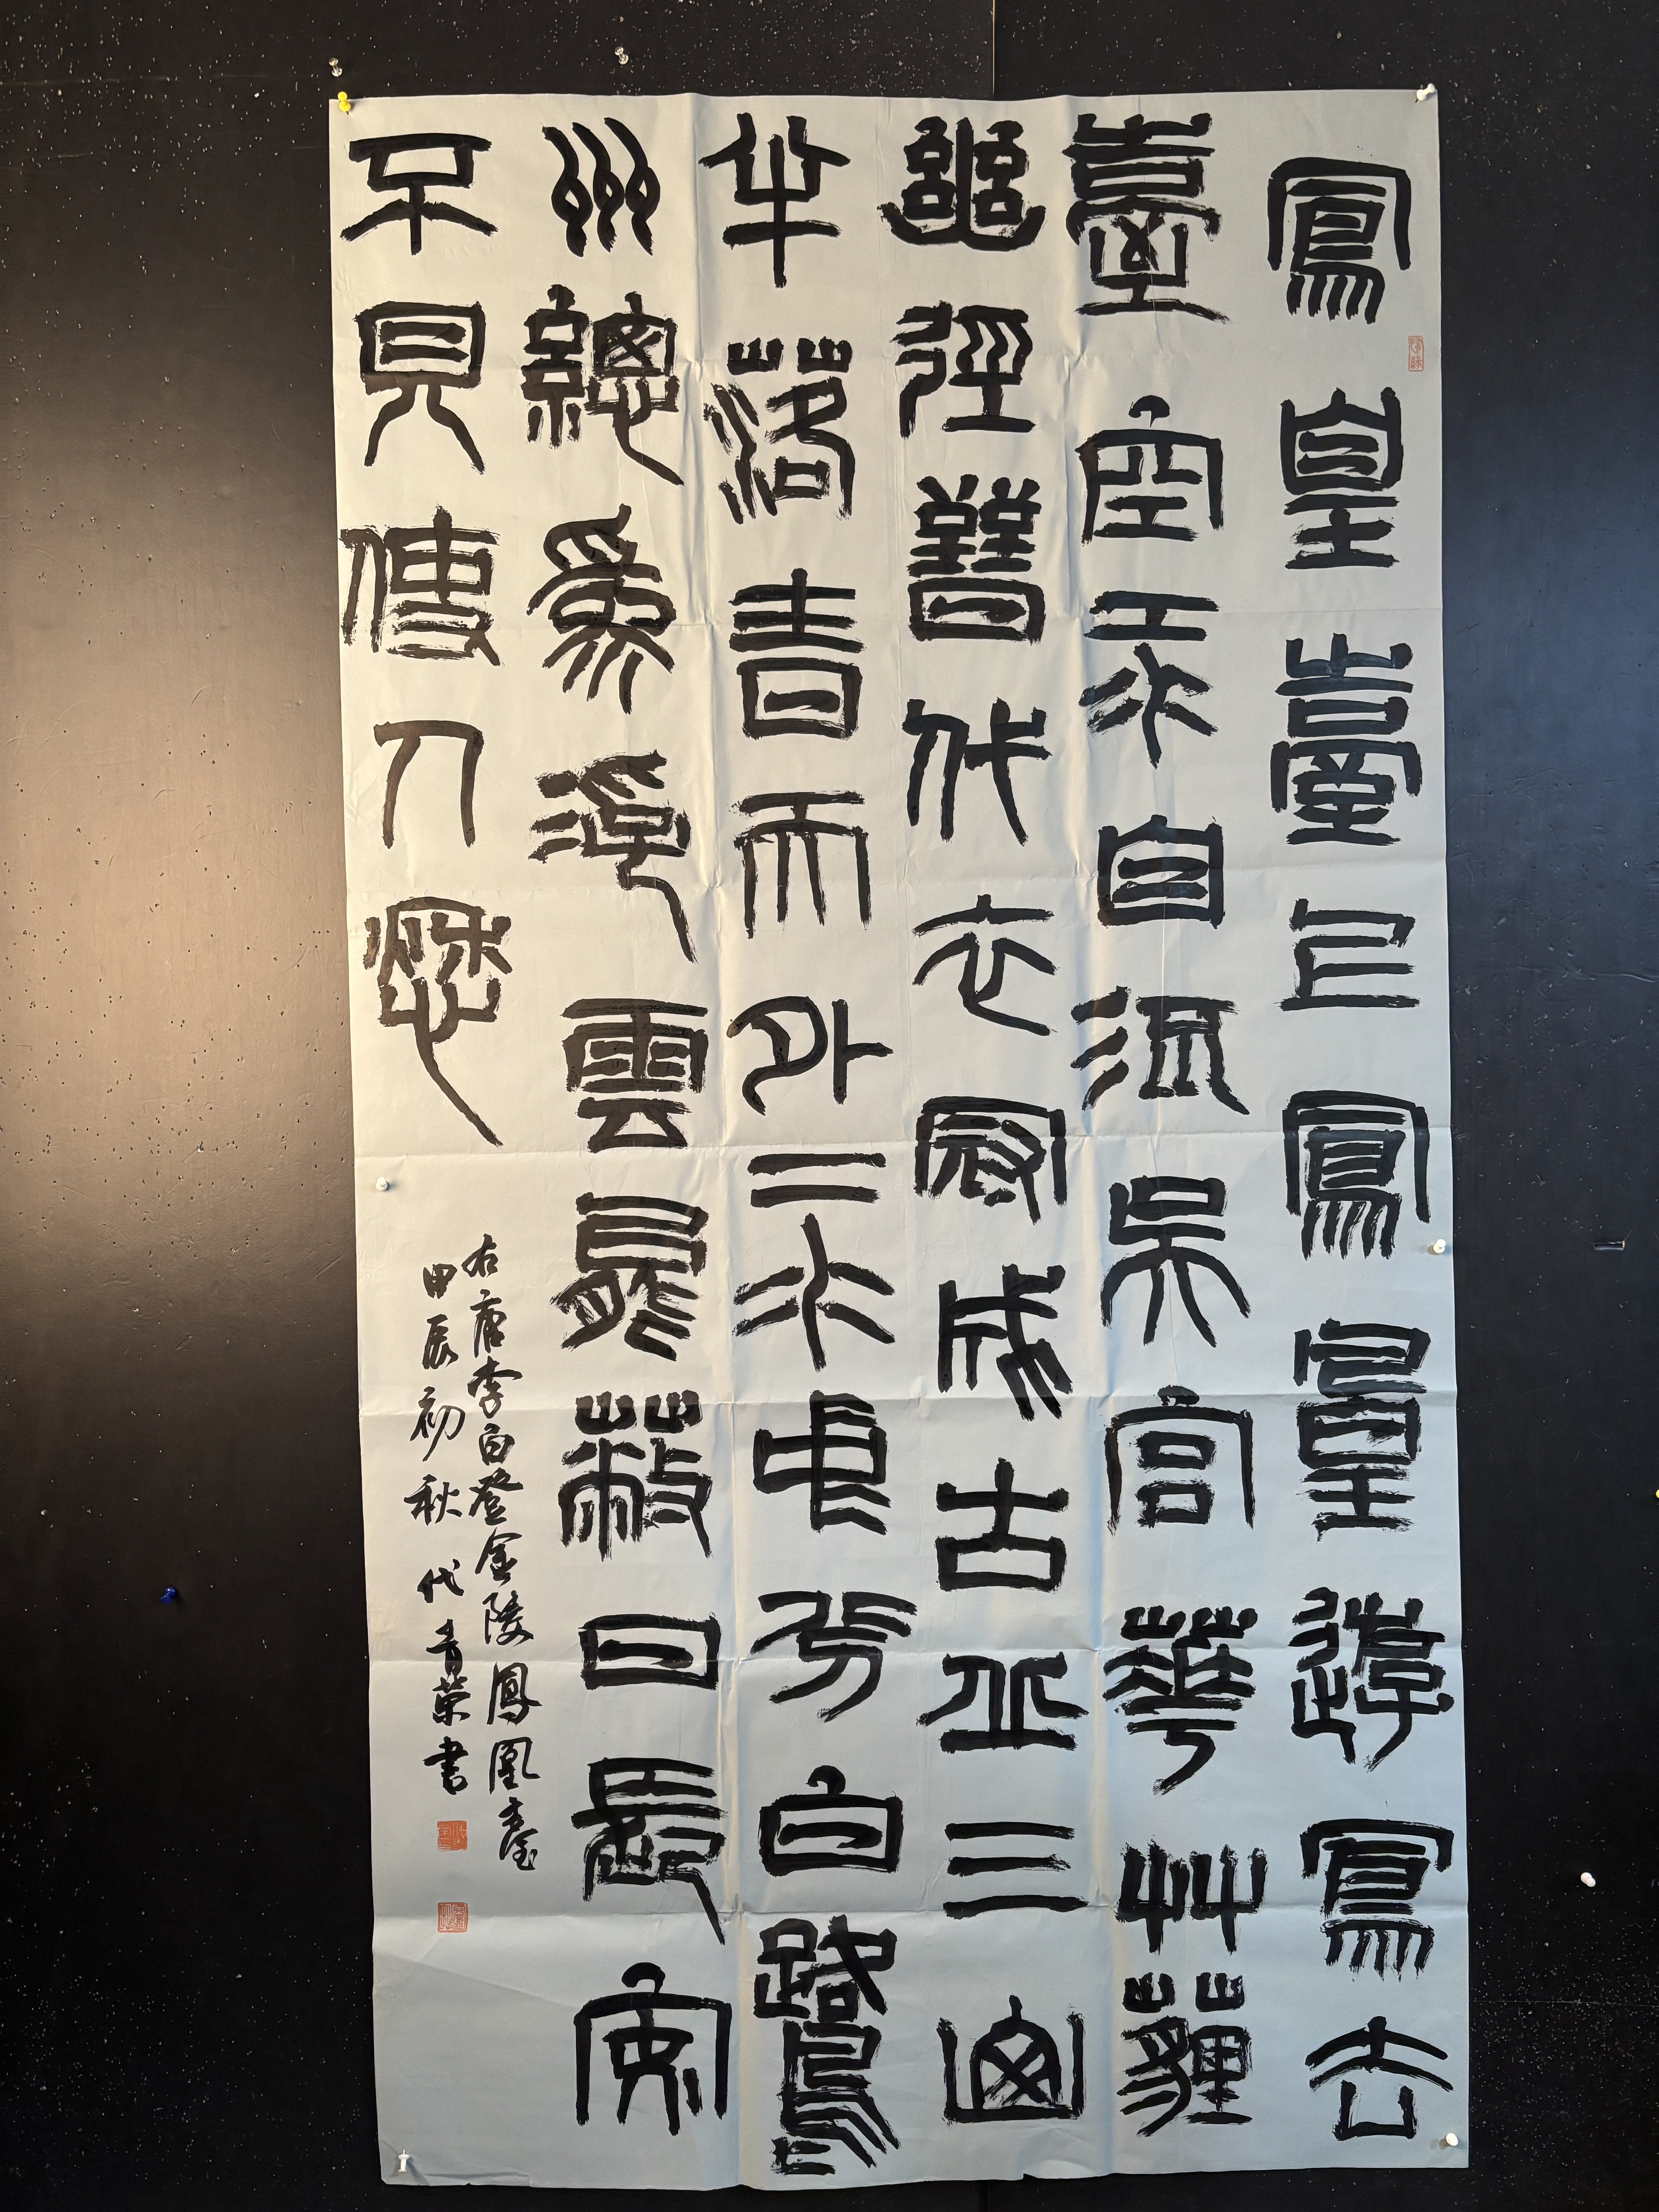 鳳皇臺上鳳皇遊鳳去
臺空江自流吳宮華艸薶
幽徑晉代衣冠成古丘三山
半落青天外二水中分白鷺
州總為浮雲能蔽日長安
不見使人愁
右唐李白登金陵鳳凰臺
甲辰初秋 代青榮書